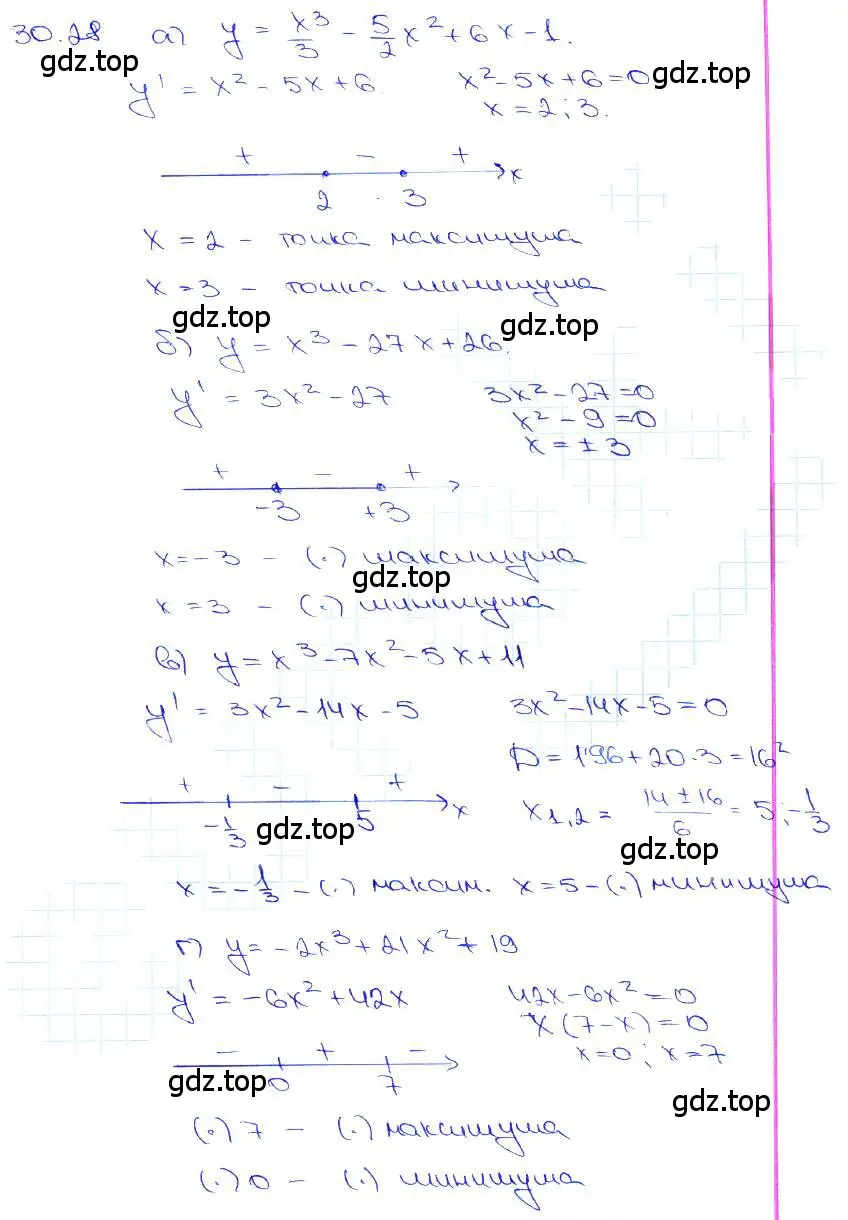 30.28 а) y = x³/3 - 5/2 x² + 6x - 1.
gdz.top gdz.top
y' = x² - 5x + 6. x² - 5x + 6 = 0
x = 2; 3.
+ - +
2 3 x
x = 2 - точка максимума
x = 3 - точка минимума
gdz.top gdz.top
б) y = x³ - 27x + 26.
y' = 3x² - 27 3x² - 27 = 0
x² - 9 = 0
x = ± 3
+ - +
-3 +3
x = -3 - (·) максимума
gdz.top
x = 3 - (·) минимума
в) y = x³ - 7x² - 5x + 11
y' = 3x² - 14x - 5 3x² - 14x - 5 = 0
D = 196 + 20·3 = 16²
+ - +
-1/3 5 x x1,2 = (14 ± 16)/6 = 5; -1/3
gdz.top gdz.top
x = -1/3 - (·) максим. x = 5 - (·) минимума
г) y = -2x³ + 21x² + 19
y' = -6x² + 42x 42x - 6x² = 0
x(7 - x) = 0
x = 0; x = 7
- + -
0 7
gdz.top gdz.top
(·) 7 - (·) максимума
(·) 0 - (·) минимума